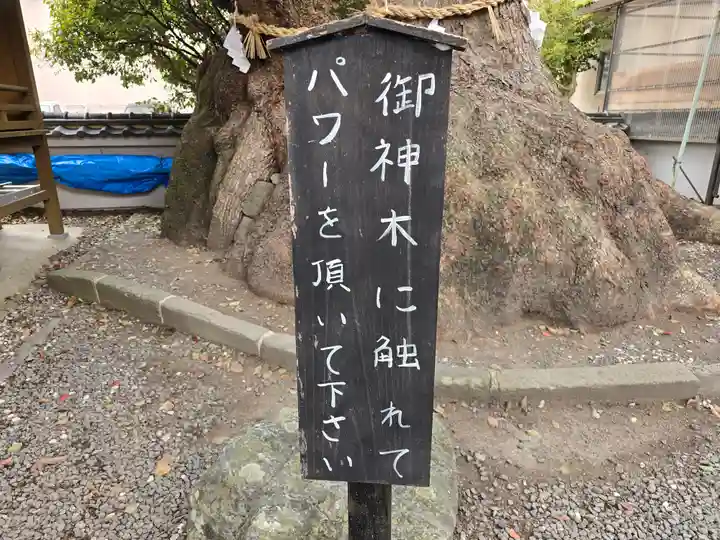 御神木に触れて
パワーを頂いて下さい